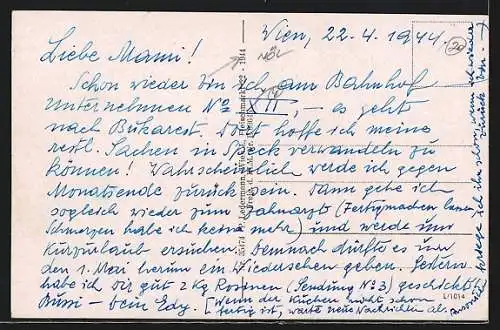 Wien, 22.4.1944.
20
Liebe Mami!
NÖL
Schon wieder bin ich am Bahnhof
Unternehmen No XII, – es geht
nach Bukarest. Dort hoffe ich meine
restl. Sachen in Speck verwandeln zu
können! Wahrscheinlich werde ich gegen
Monatsende zurück sein. Dann gehe ich
sogleich wieder zum Zahnarzt (Fertigmachen
Schmerzen habe ich keine mehr) und werde um
Kurzurlaub ersuchen. Demnach dürfte es um
den 1. Mai herum ein Wiedersehen geben. Gestern
habe ich Dir gut 2 kg Rosinen (Sendung No 3) geschickt.
Bussi – Dein Edy. [Wenn der Kuchen nicht schon
fertig ist, warte neue Nachrichten ab.
ich ihn schon, wenn ich wieder
zurück bin.
L/1014